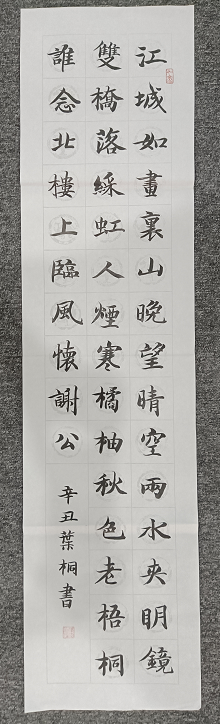 江城如畫裏山晚望晴空兩水夾明鏡
雙橋落綵虹人煙寒橘柚秋色老梧桐
誰念北樓上臨風懷謝公
辛丑葉桐書